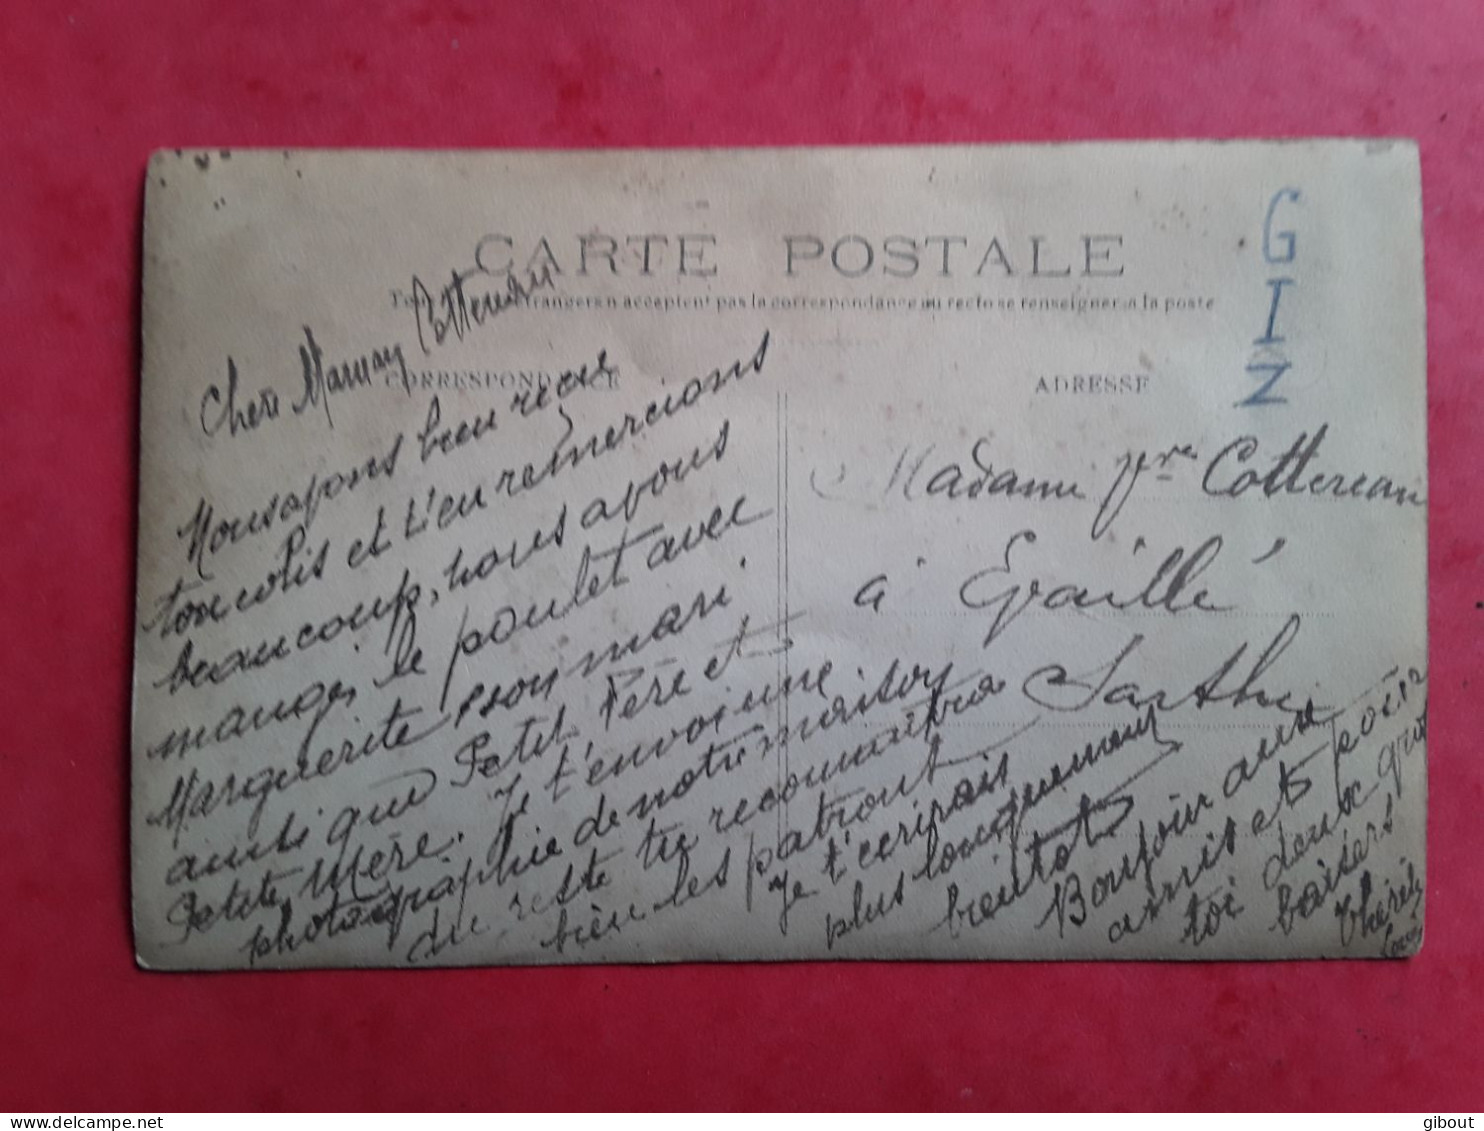 CARTE POSTALE
Tous les étrangers n'acceptent pas la correspondance au recto se renseigner à la poste
CORRESPONDANCE
ADRESSE
G
I
Z
Chère Maman Cottereau
Nous avons bien reçu
ton colis et t'en remercions
beaucoup, nous avons
mangé le poulet avec
Marguerite son mari
ainsi que Petit Père et
Petite Mère. Je t'envoi une
photographie de notre maison
du reste tu reconnaitra
bien les patront
Je t'ecrirais
plus longuement
bientot
Bonjour aux
amis et pour
toi deux gros
baisers
Madame Vve Cottereau
à Epaillé
Sarthe
delcampe.net
gibout